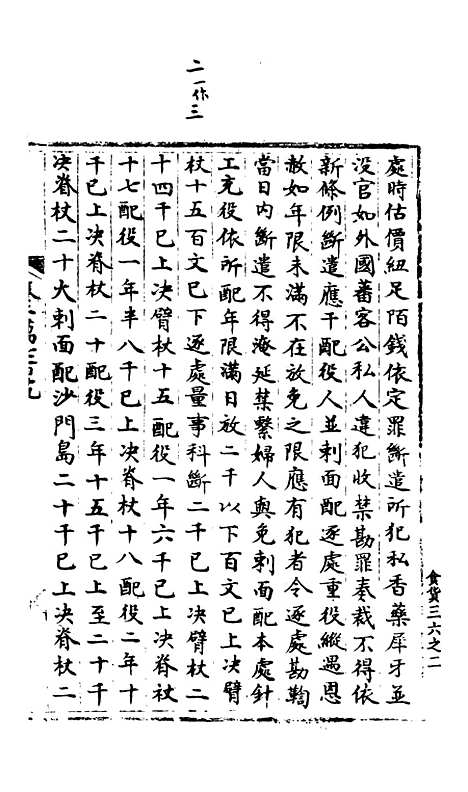 二一作三
食貨三六之二
處時估價紐足陌錢依定罪斷遣所犯私香藥犀牙並
沒官如外國蕃客公私人違犯收禁勘罪奏裁不得依
新條例斷遣應干配役人並刺面配逐處重役縱遇恩
赦如年限未滿不在放免之限應有犯者令逐處勘鞫
當日內斷遣不得淹延禁繫婦人與免刺面配本處針
工充役依所配年限滿日放二千以下百文已上決臂
杖十五百文已下逐處量事科斷二千已上決臂杖二
十四千已上決臂杖十五配役一年六千已上決脊杖
十七配役一年半八千已上決脊杖十八配役二年十
千已上決脊杖二十配役三年十五千已上至二十千
決脊杖二十大刺面配沙門島二十千已上決脊杖二